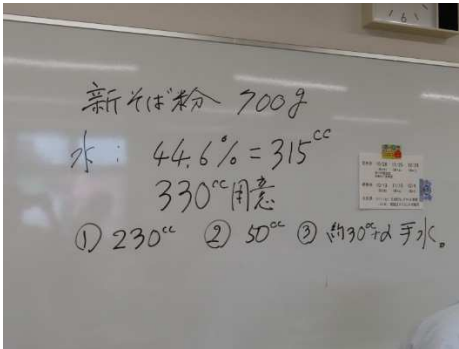 新そば粉 700g
水: 44.6% = 315cc
330cc用意
① 230cc ② 50cc ③ 約30cc+α 手水。